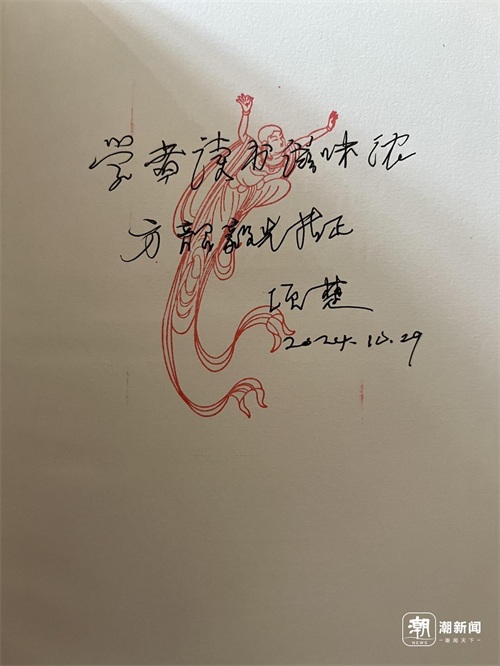 学者读书滋味浓
方韶毅兄指正
项楚
2024.10.29
潮 潮新闻
NEWS 潮闻天下